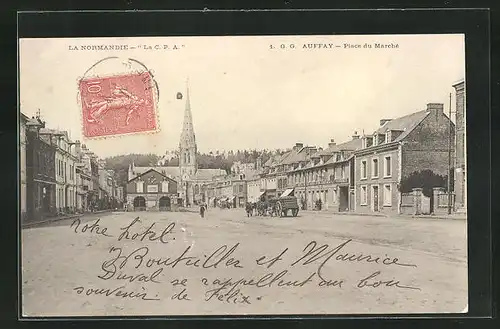 LA NORMANDIE — "La C. P. A."
3. G. G. AUFFAY — Place du Marché
10
Notre hotel.
Bouteilles et Maurice
Duval se rappellent au bon
souvenir de Félix